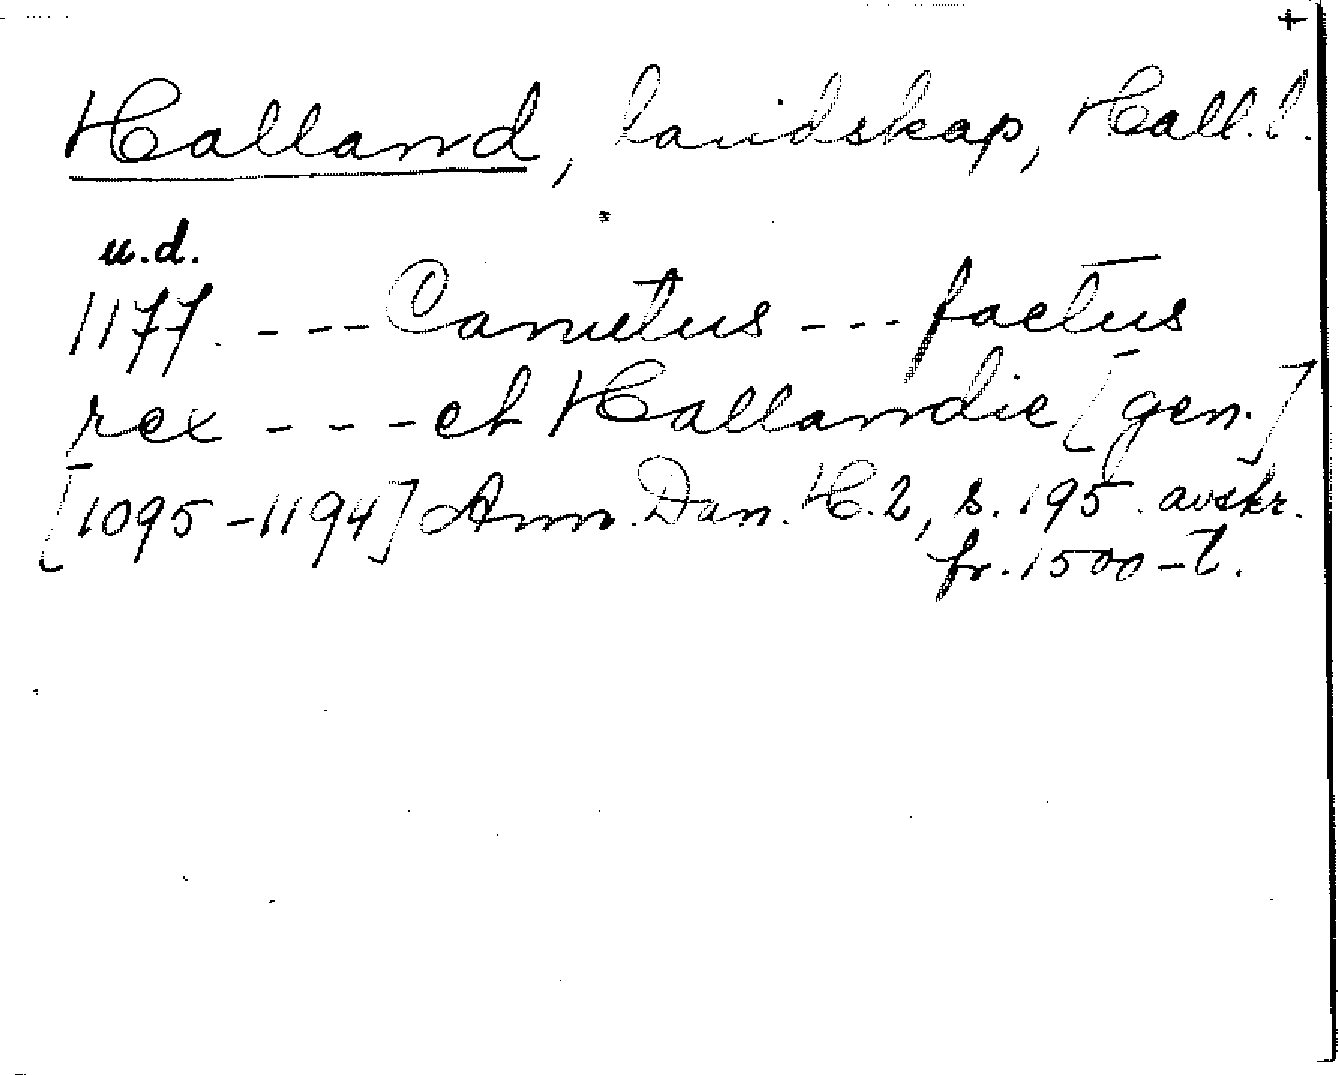 +
Halland, landskap, Hall.l.
u.d.
1177. --- Canutus --- factus
rex --- et Hallandie [gen.]
[1095-1194] Ann. Dan. H.2, s. 195. avskr.
fr. 1500-t.